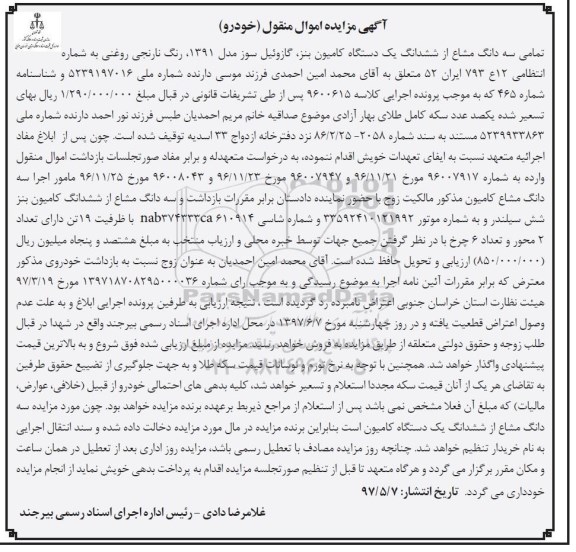 آگهی مزایده اموال منقول (خودرو)
تمامی سه دانگ مشاع از ششدانگ یک دستگاه کامیون بنز، گازوئیل سوز مدل ۱۳۹۱، رنگ نارنجی روغنی به شماره
انتظامی ۱۲ع ۷۹۳ ایران ۵۲ متعلق به آقای محمد امین احمدی فرزند موسی دارنده شماره ملی ۵۲۳۹۱۹۷۰۱۶ و شناسنامه
شماره ۴۶۵ که به موجب پرونده اجرایی کلاسه ۹۶۰۰۶۱۵ پس از طی تشریفات قانونی در قبال مبلغ ۱/۲۹۰/۰۰۰/۰۰۰ ریال بهای
تسعیر شده یکصد عدد سکه کامل طلای بهار آزادی موضوع صداقیه خانم مریم احمدیان طبس فرزند نور احمد دارنده شماره ملی
۵۲۳۹۹۳۳۸۶۳ مستند به سند شماره ۲۰۵۸- ۸۶/۲/۲۵ نزد دفترخانه ازدواج ۳۳ اسدیه توقیف شده است. چون پس از ابلاغ مفاد
اجرائیه متعهد نسبت به ایفای تعهدات خویش اقدام ننموده، به درخواست متعهدله و برابر مفاد صورتجلسات بازداشت اموال منقول
وارده به شماره ۹۶۰۰۷۹۱۷ مورخ ۹۶/۱۱/۲۱ و ۹۶۰۰۷۹۴۷ مورخ ۹۶/۱۱/۲۳ و ۹۶۰۰۸۰۴۳ مورخ ۹۶/۱۱/۲۵ مامور اجرا سه
دانگ مشاع کامیون مذکور مالکیت زوج با حضور نماینده دادستان برابر مقررات بازداشت و سه دانگ مشاع از ششدانگ کامیون بنز
شش سیلندر و به شماره موتور ۳۳۵۹۲۴۱۰۱۲۱۹۹۲ و شماره شاسی nab۳۷۴۳۳۳ca ۶۱۰۹۱۴ با ظرفیت ۱۹تن دارای تعداد
۲ محور و تعداد ۶ چرخ با در نظر گرفتن جمیع جهات توسط خبره محلی و ارزیاب منتخب به مبلغ هشتصد و پنجاه میلیون ریال
(۸۵۰/۰۰۰/۰۰۰) ارزیابی و تحویل حافظ شده است. آقای محمد امین احمدیان به عنوان زوج نسبت به بازداشت خودروی مذکور
معترض که برابر مقررات آئین نامه اجرا به موضوع رسیدگی و به موجب رای شماره ۱۳۹۷۱۸۷۰۸۲۹۵۰۰۰۰۳۶ مورخ ۹۷/۳/۱۹
هیئت نظارت استان خراسان جنوبی اعتراض نامبرده رد گردیده است. نتیجه ارزیابی به طرفین پرونده اجرایی ابلاغ و به علت عدم
وصول اعتراض قطعیت یافته و در روز چهارشنبه مورخ ۱۳۹۷/۶/۷ در محل اداره اجرای اسناد رسمی بیرجند واقع در شهدا در قبال
طلب زوجه و حقوق دولتی متعلقه از طریق مزایده به فروش خواهد رسید. مزایده از مبلغ ارزیابی شده فوق شروع و به بالاترین قیمت
پیشنهادی واگذار خواهد شد. همچنین با توجه به نرخ تورم و نوسانات قیمت سکه طلا و به جهت جلوگیری از تضییع حقوق طرفین
به تقاضای هر یک از آنان قیمت سکه مجددا استعلام و تسعیر خواهد شد، کلیه بدهی های احتمالی خودرو از قبیل (خلافی، عوارض،
مالیات) که مبلغ آن فعلا مشخص نمی باشد پس از استعلام از مراجع ذیربط برعهده برنده مزایده خواهد بود. چون مورد مزایده سه
دانگ مشاع از ششدانگ یک دستگاه کامیون است بنابراین برنده مزایده در مال مورد مزایده دخالت داده شده و سند انتقال اجرایی
به نام خریدار تنظیم خواهد شد. چنانچه روز مزایده مصادف با تعطیل رسمی باشد، مزایده روز اداری بعد از تعطیل در همان ساعت
و مکان مقرر برگزار می گردد و هرگاه متعهد تا قبل از تنظیم صورتجلسه مزایده اقدام به پرداخت بدهی خویش نماید از انجام مزایده
خودداری می گردد. تاریخ انتشار: ۹۷/۵/۷
غلامرضا دادی - رئیس اداره اجرای اسناد رسمی بیرجند